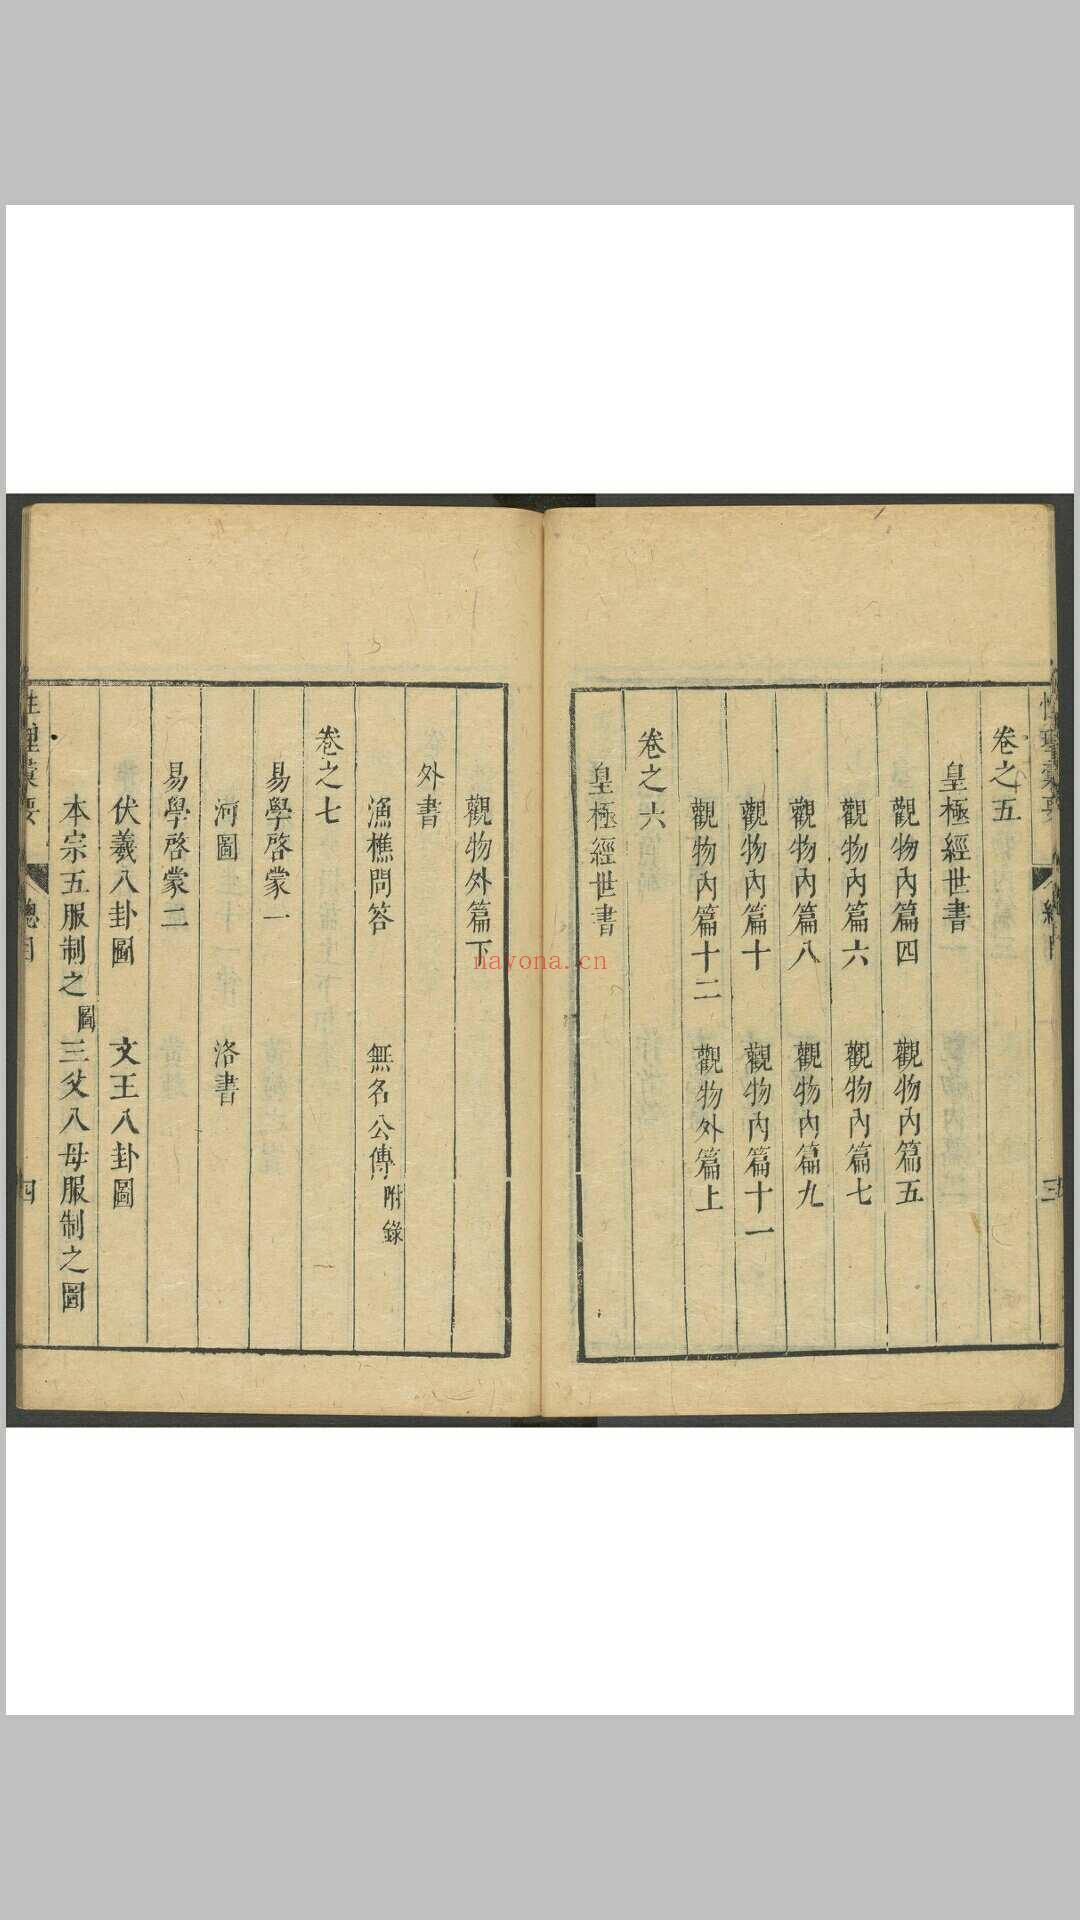 卷之五
皇極經世書
觀物內篇四 觀物內篇五
觀物內篇六 觀物內篇七
觀物內篇八 觀物內篇九
觀物內篇十 觀物內篇十一
觀物內篇十二 觀物外篇上
卷之六
皇極經世書
觀物外篇下
外書
漁樵問答 無名公傳附錄
卷之七
易學啓蒙一
河圖 洛書
易學啓蒙二
伏羲八卦圖 文王八卦圖
本宗五服制之圖 三父八母服制之圖
nayona.cn